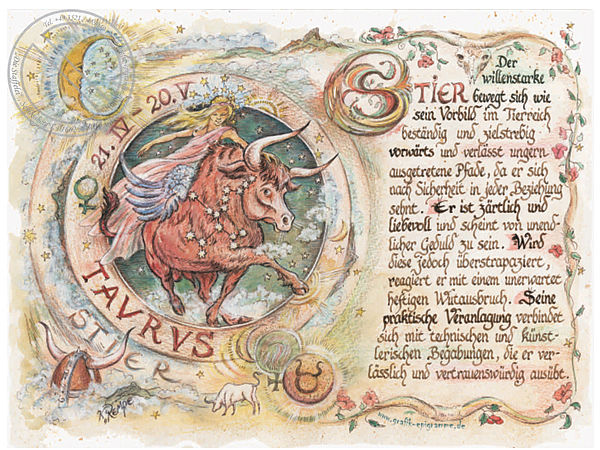 21. IV - 20. V.
TAVRVS
STIER
Der
willenstarke
STIER bewegt sich wie
sein Vorbild im Tierreich
beständig und zielstrebig
vorwärts und verlässt ungern
ausgetretene Pfade, da er sich
nach Sicherheit in jeder Beziehung
sehnt. Er ist zärtlich und
liebevoll und scheint von unend-
licher Geduld zu sein. Wird
diese jedoch überstrapaziert,
reagiert er mit einem unerwartet
heftigen Wutausbruch. Seine
praktische Veranlagung verbindet
sich mit technischen und künst-
lerischen Begabungen, die er ver-
lässlich und vertrauenswürdig ausübt.
www.grafik-epigramme.de